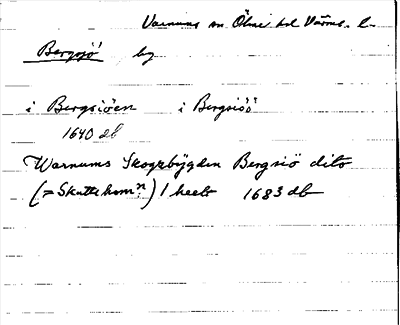 Varnums sn Ölme hd Värml. l.
Bergsjö by
i Bergsiöen i Bergsiöö
1640 db
Warnums Skogzbÿgden Bergsiö dito
(= Skattehemn) 1 heelt 1683 db